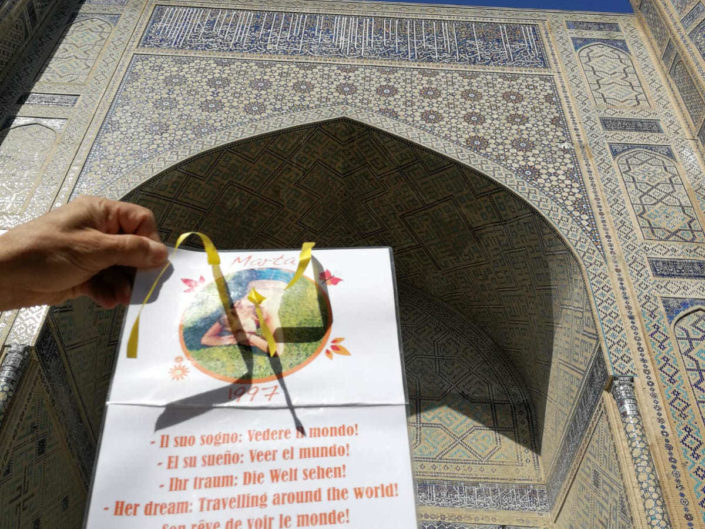 Marta
1997
- Il suo sogno: Vedere il mondo!
- El su sueño: Veer el mundo!
- Ihr traum: Die Welt sehen!
- Her dream: Travelling around the world!
Son rêve de voir le monde!